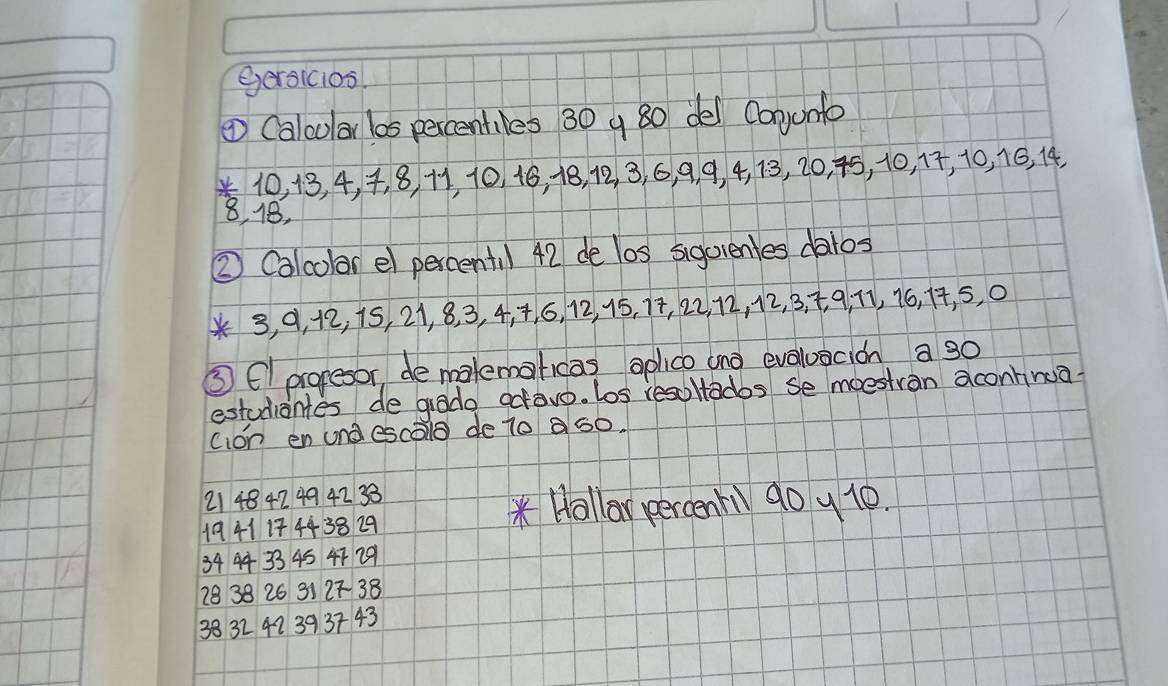 Gersicios.
① Calcular los percentiles 30 y 80 del Conjunto
* 10, 13, 4, 7, 8, 11, 10, 16, 18, 12, 3, 6, 9, 9, 4, 13, 20, 75, 10, 17, 10, 16, 14,
8, 18,
② Calcolar el percentil 42 de los siguientes datos
* 3, 9, 12, 15, 21, 8, 3, 4, 7, 6, 12, 15, 17, 22, 12, 12, 3, 7, 9, 11, 16, 17, 5, 0
③ El profesor de matematicas aplico una evaluación a 30
estudiantes de grado octavo. los resultados se muestran acontinua-
ción en una escala de 10 a 50.
21 48 42 49 42 33
19 41 17 44 38 29
34 44 33 45 47 29
28 38 26 31 27 38
38 32 42 39 37 43
* Hallar percentil 90 y 10.